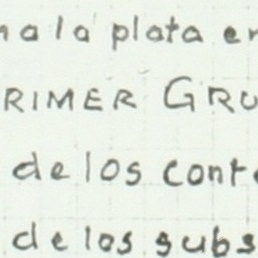 na la plata en
RIMER GRU
de los cont
de los subs